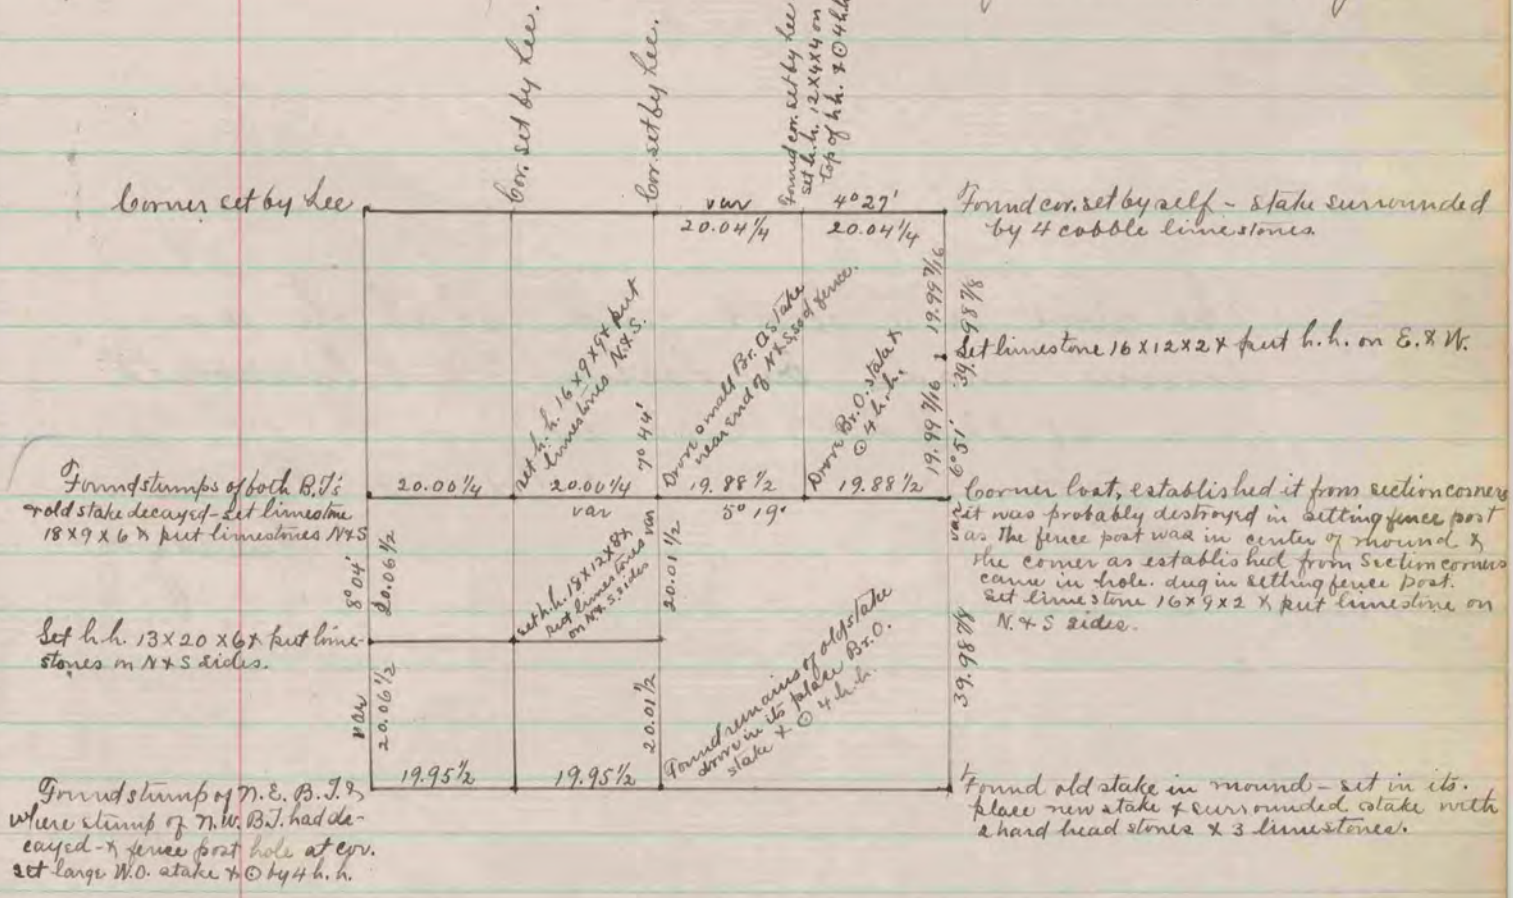 Cor. set by Lee.
Cor. set by Lee.
Found cor. set by Lee
set h.h. 12 x 4 x 4 on
top of h.h. & ⊙ 4 h.h.
Corner set by Lee
var 4°27'
20.04 1/4 20.04 1/4
Found cor. set by self - stake surrounded
by 4 cobble limestones.
19.99 7/16
39.98 7/8
Set limestone 16 x 12 x 2 & put h.h. on E. & W.
19.99 7/16
6°51'
var
set h.h. 16 x 9 x 9 & put
limestones N. & S.
7°44'
var
Drove small Br. O. stake
near end of N & S, so of fence.
Drove Br. O. stake &
⊙ 4 h.h.
Found stumps of both B.T's
& old stake decayed - set limestone
18 x 9 x 6 & put limestones N & S
20.00 1/4 20.00 1/4 19.88 1/2 19.88 1/2
var 5°19'
Corner lost, established it from section corners
it was probably destroyed in setting fence post
as the fence post was in center of mound &
the corner as established from Section corners
came in hole. dug in setting fence post.
Set limestone 16 x 9 x 2 & put limestone on
N. & S sides.
8°04'
var
20.06 1/2
20.01 1/2
set h.h. 18 x 12 x 8 &
put limestones
on N. & S. sides
Set h.h. 13 x 20 x 6 & put lime-
stones on N & S sides.
20.06 1/2
20.01 1/2
39.98 7/8
Found remains of old stake
drove in its place Br. O.
stake & ⊙ 4 h.h.
19.95 1/2 19.95 1/2
Found stump of N.E. B.T. &
where stump of N.W. B.T. had de-
cayed - & fence post hole at cor.
set large W.O. stake & ⊙ by 4 h.h.
Found old stake in mound - set in its.
place new stake & surrounded stake with
2 hard head stones & 3 limestones.